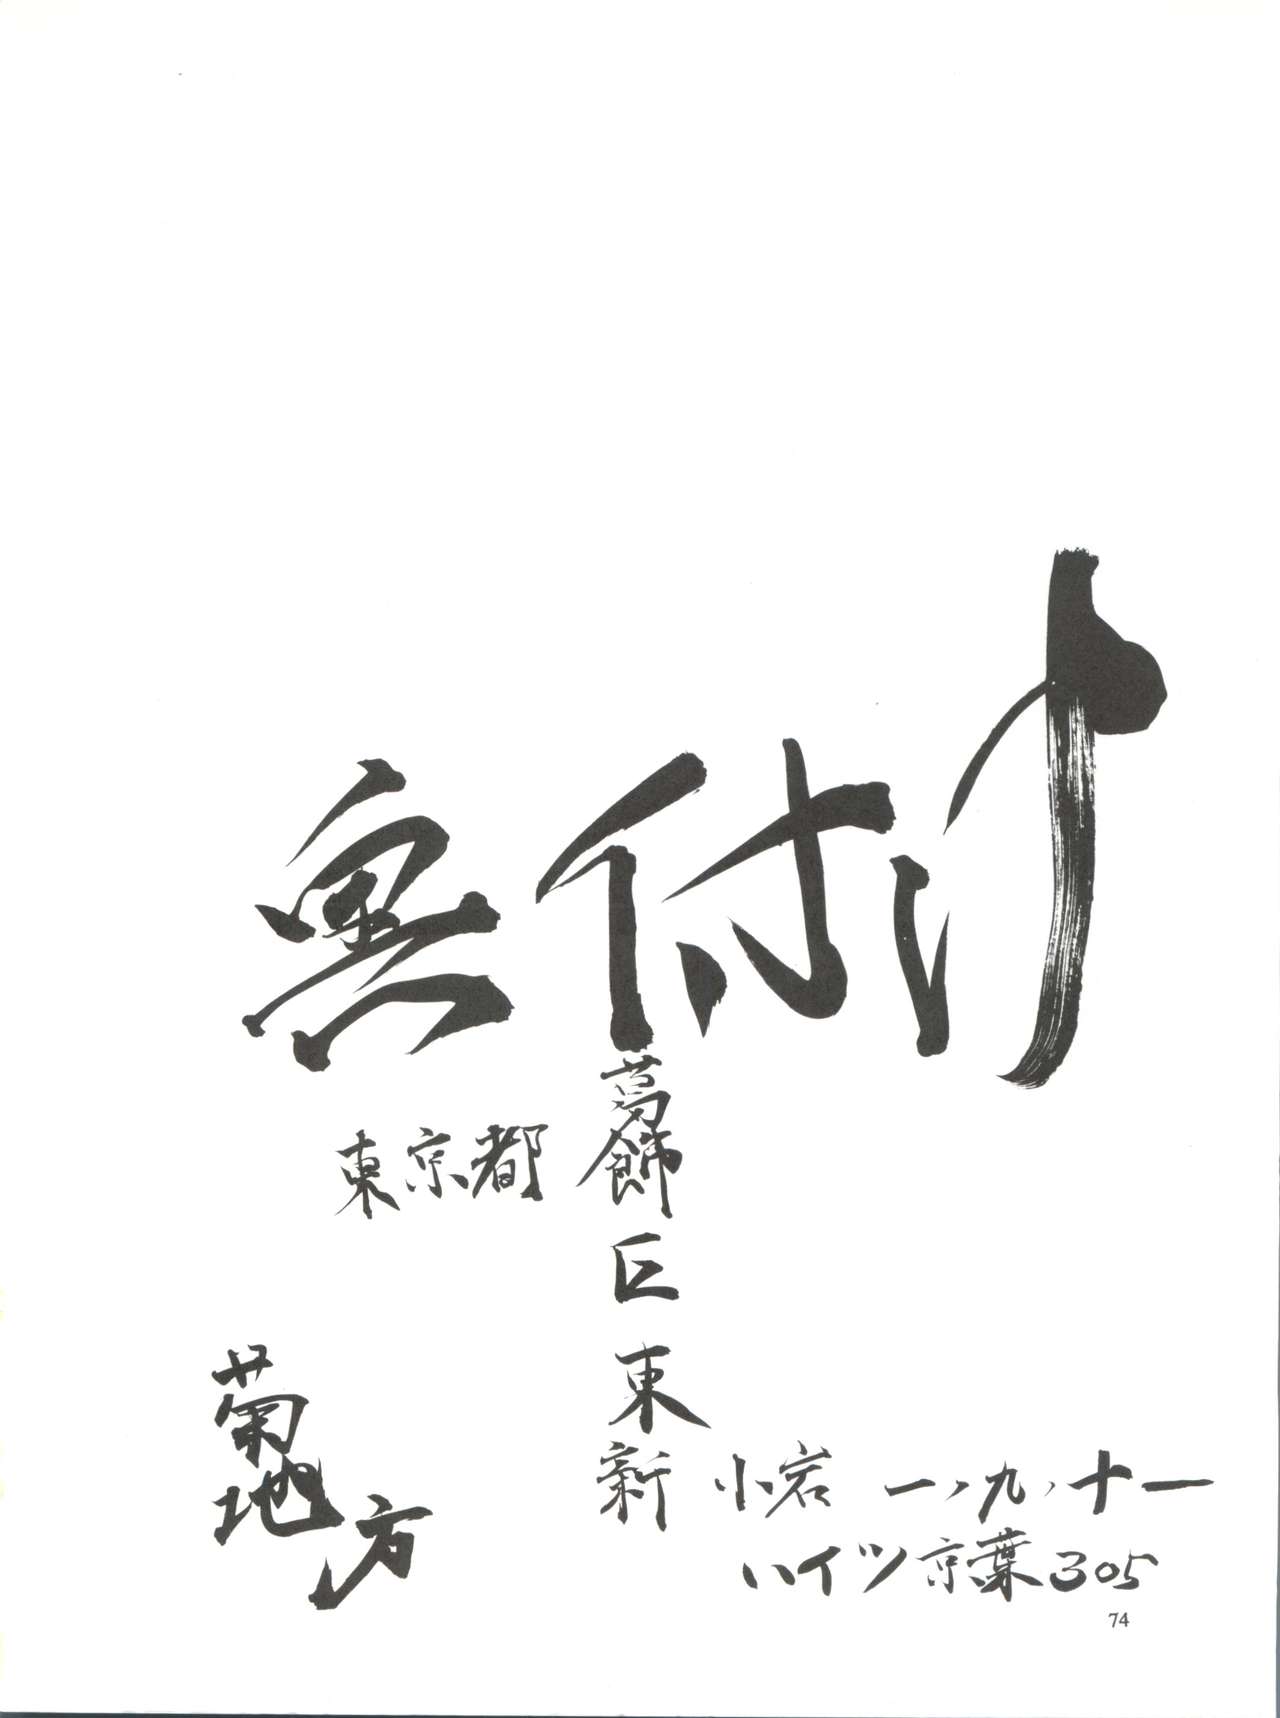 奥付け
東京都
葛飾区
東新
小岩 一、九、十一
ハイツ京葉305
菊地方
74